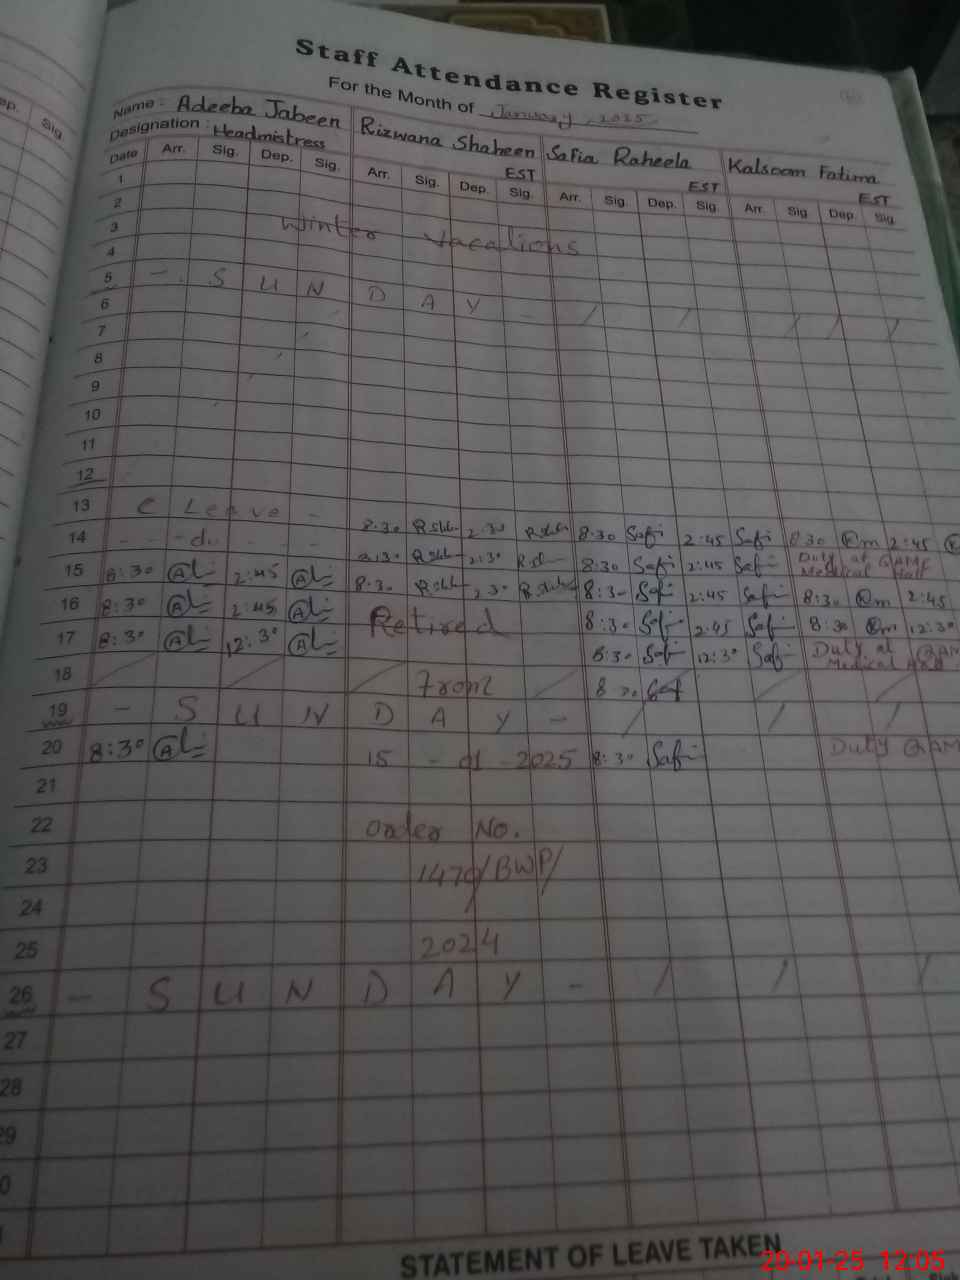 Staff Attendance Register
For the Month of January, 2025
Name : Adeeba Jabeen Rizwana Shaheen Safia Raheela Kalsoom Fatima
Designation : Headmistress EST EST EST
Date Arr. Sig. Dep. Sig. Arr. Sig. Dep. Sig. Arr. Sig. Dep. Sig. Arr. Sig. Dep. Sig.
1
2
3 Winter Vacations
4
5 - S U N D A Y -
6
7
8
9
10
11
12
13 C Leave - 8:30 2:30 8:30 Safi 2:45 Safi 8:30 2:45
14 - - do - - - 8:30 2:30 8:30 Safi 2:45 Safi Duty at
Medical
15 8:30 2:45 8:30 2:30 8:30 Safi 2:45 Safi 8:30 2:45
16 8:30 2:45 Retired 8:30 Safi 2:45 Safi 8:30 12:30
17 8:30 12:30 8:30 Safi 12:30 Safi Duty at
Medical
18 From 8:30
19 - S U N D A Y -
20 8:30 15 - 01 - 2025 8:30 Safi Duty QAM
21
22 order No.
23 1470/BWP/
24
25 2024
26 - S U N D A Y -
27
28
29
STATEMENT OF LEAVE TAKEN
20-01-25 12:05